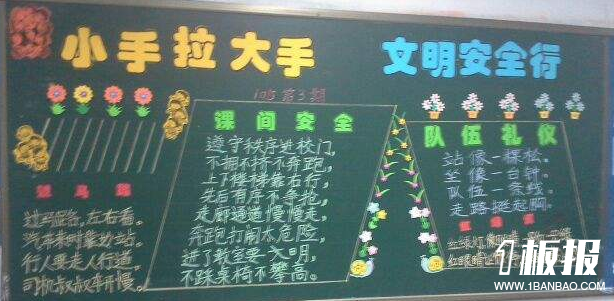 小手拉大手 文明安全行
课间安全
遵守秩序进校门,
不拥不挤不奔跑,
上下楼梯靠右行,
先后有序不争抢,
走廊通道慢慢走,
奔跑打闹太危险,
进了教室要文明,
不踩桌椅不攀高。
过马路
过马路,左右看。
汽车来时靠边站。
行人要走人行道。
司机叔叔车开慢。
队伍礼仪
站像一棵松。
坐像一台钟。
队伍一条线。
走路挺起胸。
红绿灯
板报
WWW.1BANBAO.COM